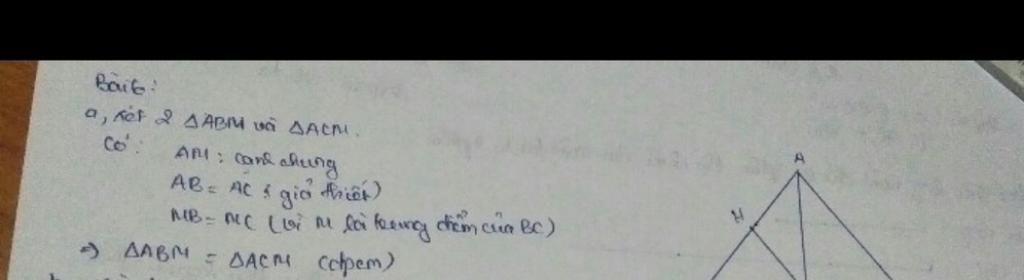 Bài 6:
a, xét 2 ΔABM và ΔACM.
Có: AM: cạnh chung
AB = AC (giả thiết)
MB = MC (vì M là trung điểm của BC)
=> ΔABM = ΔACM (đpcm)
A
H